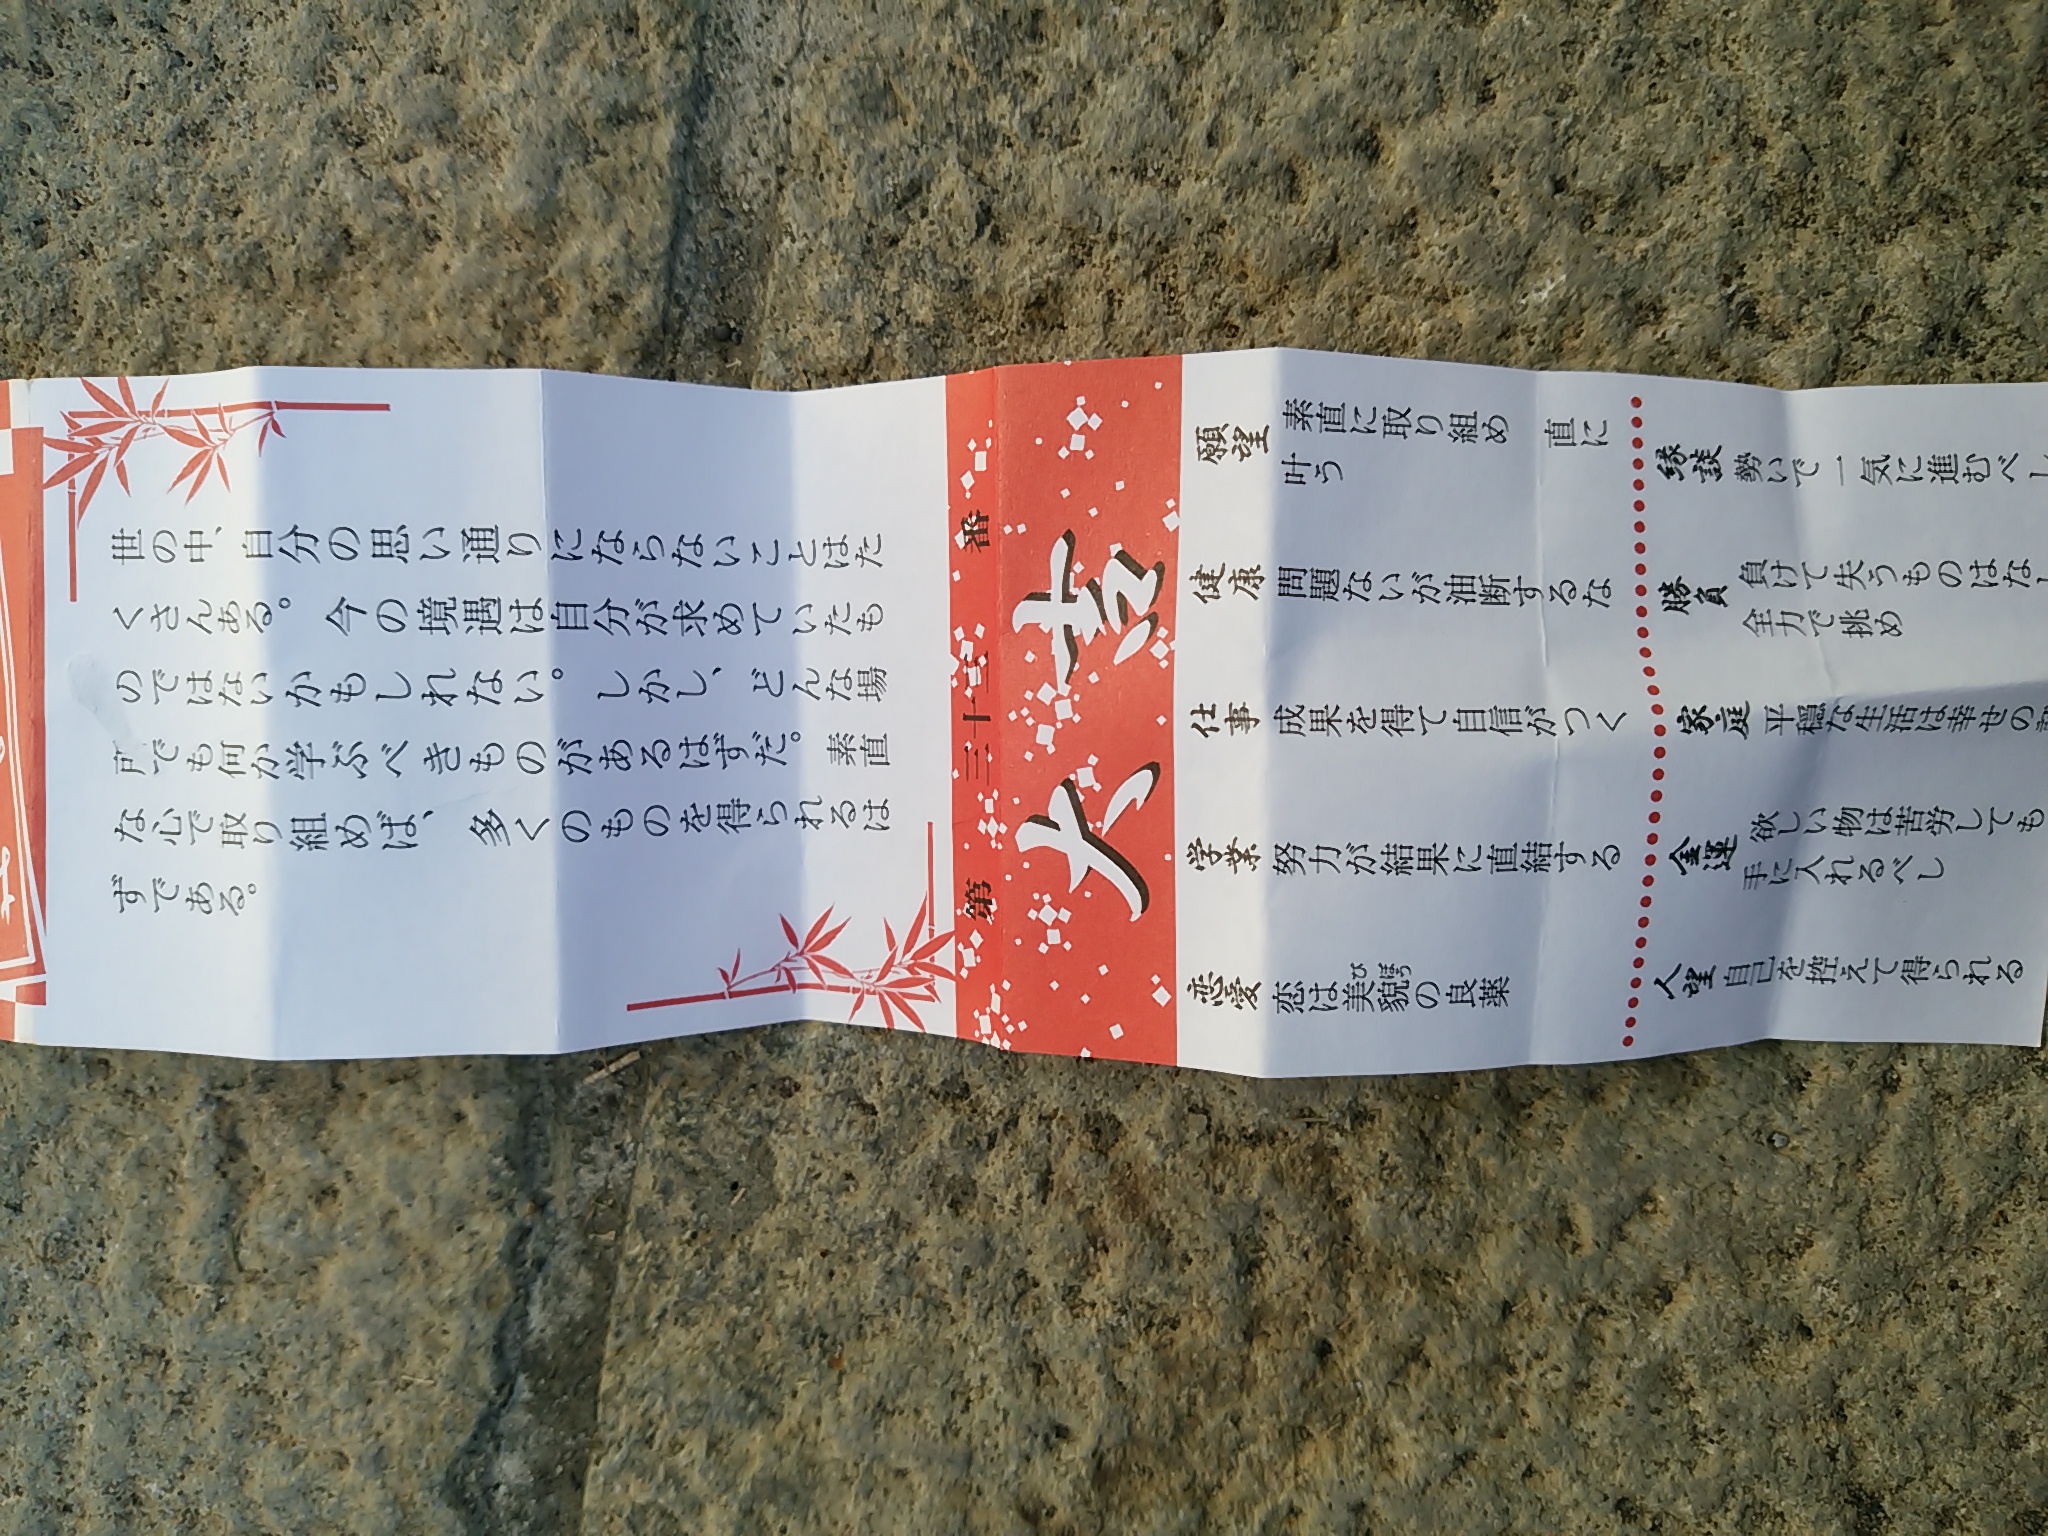 世の中、自分の思い通りにならないことはた
くさんある。今の境遇は自分が求めていたも
のではないかもしれない。しかし、どんな場
所でも何か学ぶべきものがあるはずだ。素直
な心で取り組めば、多くのものを得られるは
ずである。
第三十二番
大吉
願望 素直に取り組め 直に
叶う
健康 問題ないが油断するな
仕事 成果を得て自信がつく
学業 努力が結果に直結する
恋愛 恋は美貌の良薬
びぼう
縁談 勢いで一気に進むべし
勝負 負けて失うものはなし
全力で挑め
家庭 平穏な生活は幸せの
金運 欲しい物は苦労しても
手に入れるべし
人望 自己を控えて得られる